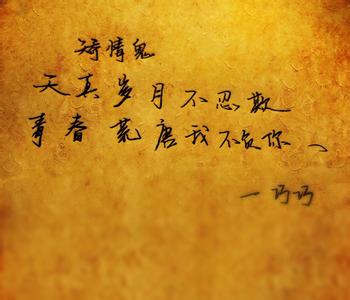 矫情鬼
天真岁月不忍欺
青春荒唐我不负你、
一巧巧